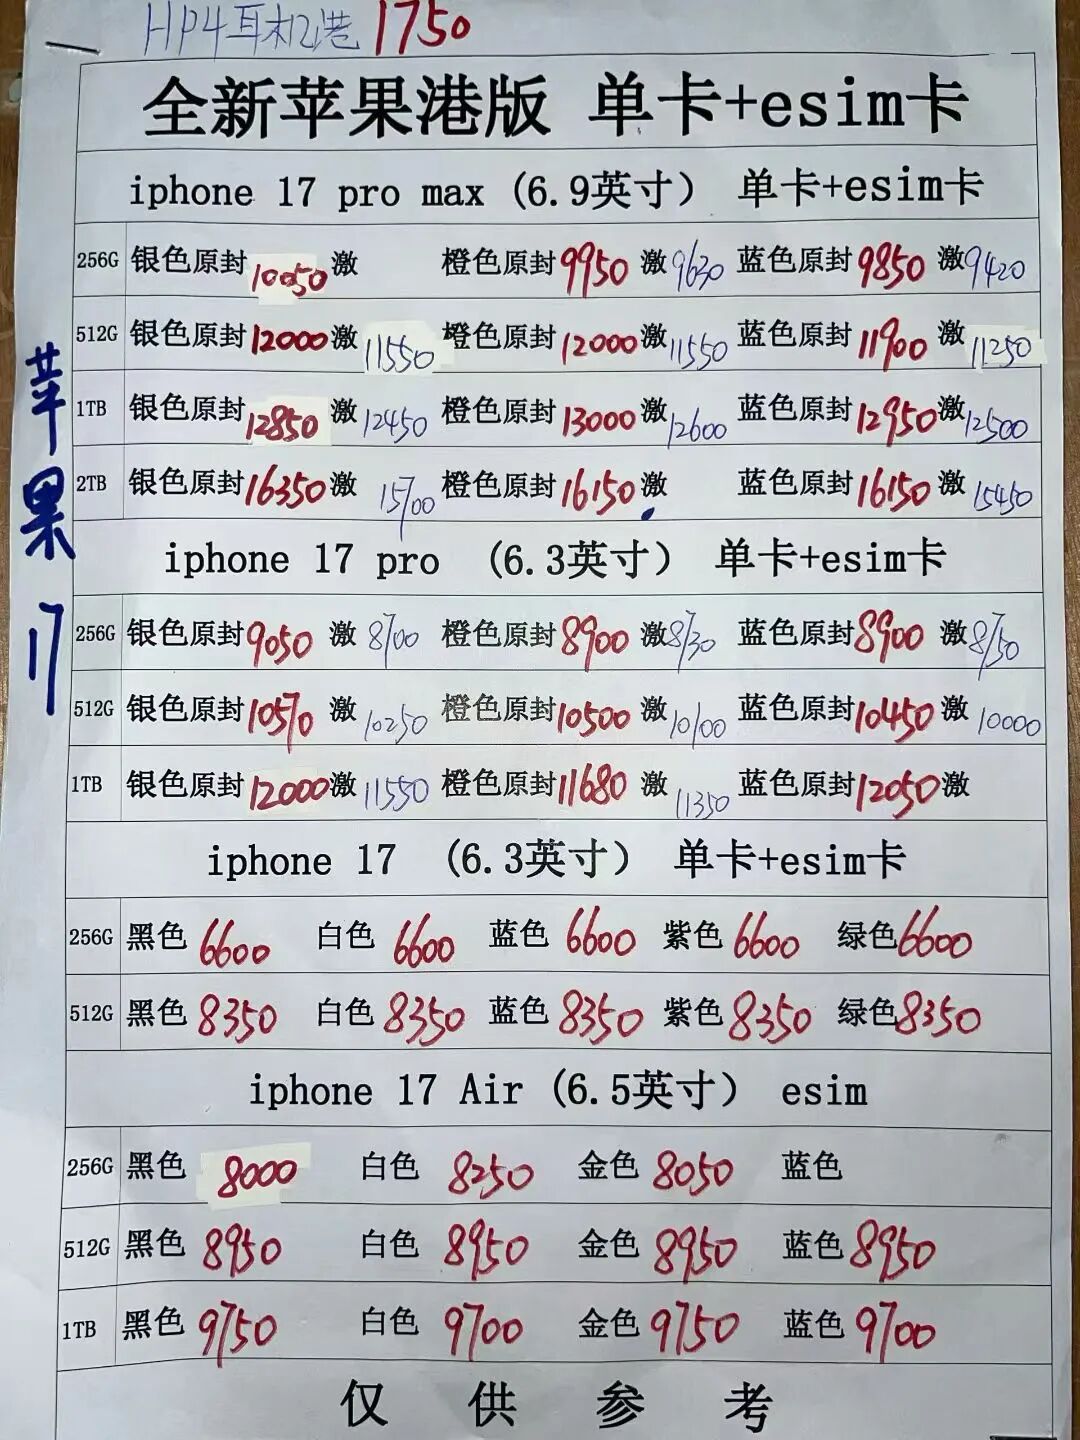 HP4耳机港 1750
全新苹果港版 单卡+esim卡
iphone 17 pro max (6.9英寸) 单卡+esim卡
256G 银色原封 10050 激 橙色原封 9950 激 9630 蓝色原封 9850 激 9420
512G 银色原封 12000 激 11550 橙色原封 12000 激 11550 蓝色原封 11900 激 11250
1TB 银色原封 12850 激 12450 橙色原封 13000 激 12600 蓝色原封 12950 激 12500
2TB 银色原封 16350 激 15700 橙色原封 16150 激 蓝色原封 16150 激 15450
苹果 17
iphone 17 pro (6.3英寸) 单卡+esim卡
256G 银色原封 9050 激 8700 橙色原封 8900 激 8730 蓝色原封 8900 激 8750
512G 银色原封 10570 激 10250 橙色原封 10500 激 10100 蓝色原封 10450 激 10000
1TB 银色原封 12000 激 11550 橙色原封 11680 激 11350 蓝色原封 12050 激
iphone 17 (6.3英寸) 单卡+esim卡
256G 黑色 6600 白色 6600 蓝色 6600 紫色 6600 绿色 6600
512G 黑色 8350 白色 8350 蓝色 8350 紫色 8350 绿色 8350
iphone 17 Air (6.5英寸) esim
256G 黑色 8000 白色 8250 金色 8050 蓝色
512G 黑色 8950 白色 8950 金色 8950 蓝色 8950
1TB 黑色 9750 白色 9700 金色 9750 蓝色 9700
仅供参考